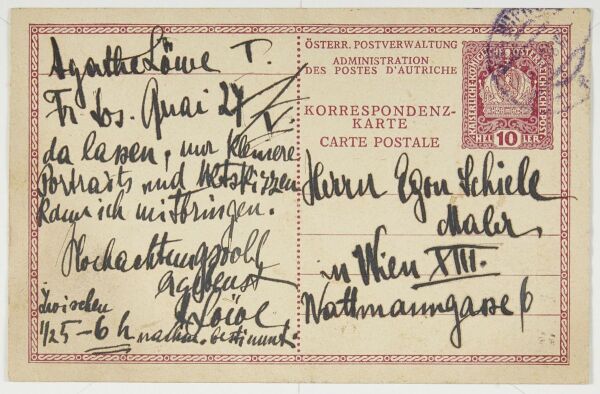 Agathe Löwe T.
Fr Jos. Quai 27
da lassen, nur kleinere
Portraits und Aktskizzen
kann ich mitbringen.
Hochachtungsvoll
ergebenst
Löwe
Zwischen
1/2 5 – 6 h nachm. bestimmt
ÖSTERR. POSTVERWALTUNG
ADMINISTRATION
DES POSTES D'AUTRICHE
KORRESPONDENZ-
KARTE
CARTE POSTALE
KAISERLICHE KÖNIGLICHE ÖSTERREICHISCHE POST
HELLER 10
Herrn Egon Schiele
Maler
in Wien XIII.
Wattmanngasse 6